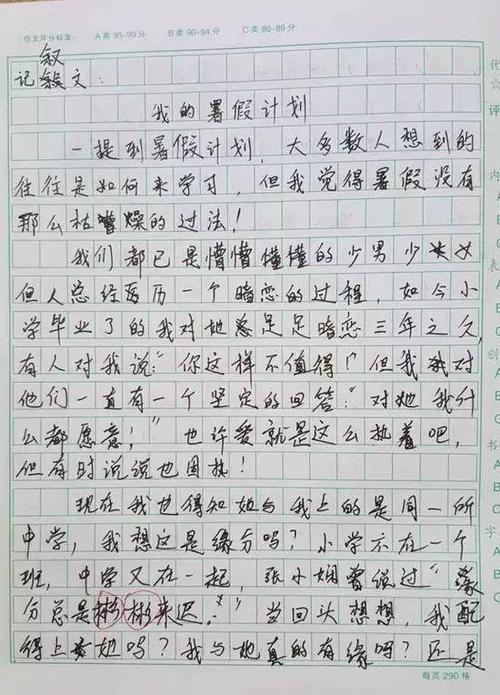 作文评分标准： A类95-99分 B类90-94分 C类80-89分
叙
记叙文：
我的暑假计划
一提到暑假计划，大多数人想到的
往往是如何来学习，但我觉得暑假没有
那么枯燥的过法！
我们都已是懵懵懂懂的少男少女
但人总经历一个暗恋的过程，如今小
学毕业了的我对她足足暗恋三年之久，
有人对我说："你这样不值得！"但我对
他们一直有一个坚定的回答："对她我什
么都愿意！"也许爱就是这么执着吧，
但有时说说也固执！
现在我也得知她与我上的是同一所
中学，我想这是缘分吗？小学不在一个
班，中学又在一起，张小娴曾说过"缘
分总是彬彬来迟"。当回头想想，我配
得上她吗？我与她真的有缘吗？还是
每页290格
代
评
内
A
B
C
表
A
B
C
创
A
B
书
A
B
C
字
A
B
C